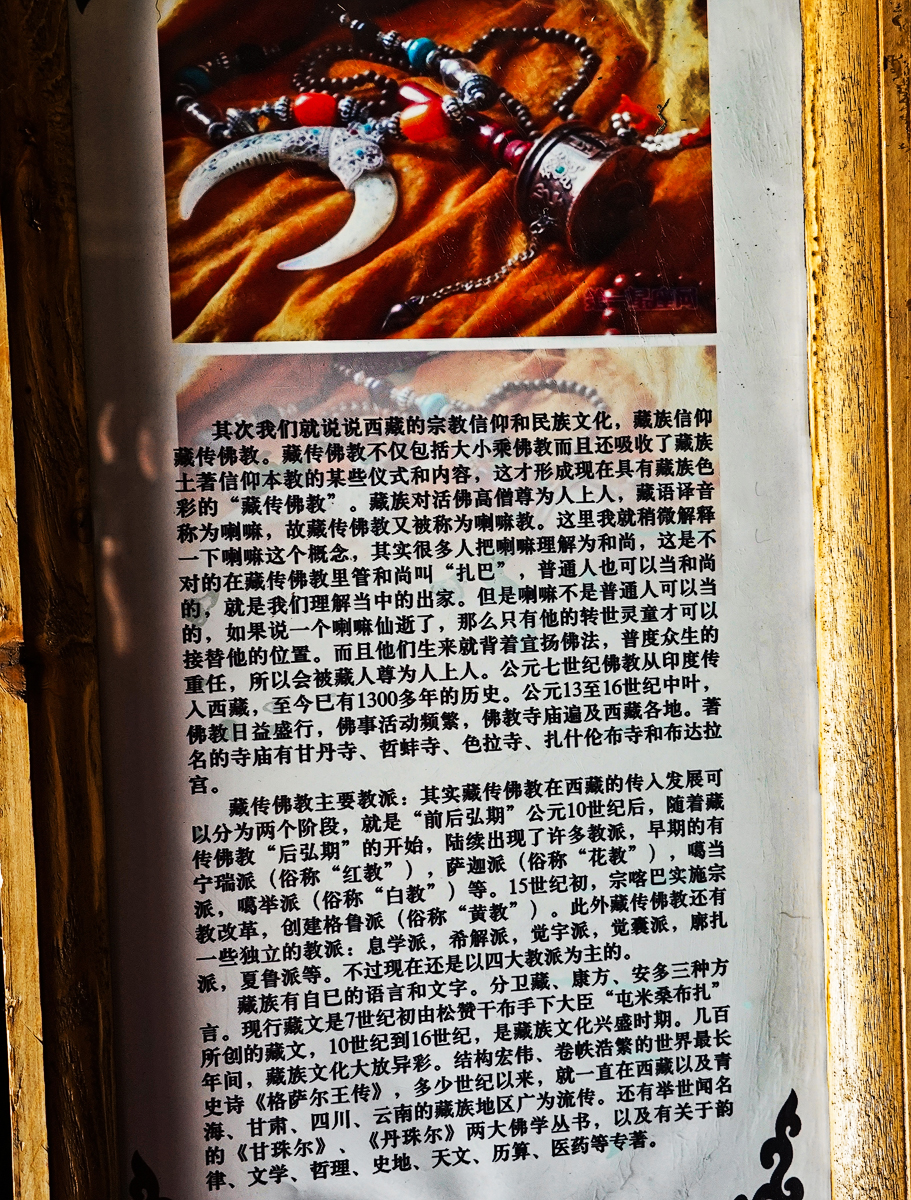 其次我们就说说西藏的宗教信仰和民族文化，藏族信仰
藏传佛教。藏传佛教不仅包括大小乘佛教而且还吸收了藏族
土著信仰本教的某些仪式和内容，这才形成现在具有藏族色
彩的“藏传佛教”。藏族对活佛高僧尊为人上人，藏语译音
称为喇嘛，故藏传佛教又被称为喇嘛教。这里我就稍微解释
一下喇嘛这个概念，其实很多人把喇嘛理解为和尚，这是不
对的在藏传佛教里管和尚叫“扎巴”，普通人也可以当和尚
的，就是我们理解当中的出家。但是喇嘛不是普通人可以当
的，如果说一个喇嘛仙逝了，那么只有他的转世灵童才可以
接替他的位置。而且他们生来就背着宣扬佛法，普度众生的
重任，所以会被藏人尊为人上人。公元七世纪佛教从印度传
入西藏，至今已有1300多年的历史。公元13至16世纪中叶，
佛教日益盛行，佛事活动频繁，佛教寺庙遍及西藏各地。著
名的寺庙有甘丹寺、哲蚌寺、色拉寺、扎什伦布寺和布达拉
宫。
藏传佛教主要教派：其实藏传佛教在西藏的传入发展可
以分为两个阶段，就是“前后弘期”公元10世纪后，随着藏
传佛教“后弘期”的开始，陆续出现了许多教派，早期的有
宁瑞派（俗称“红教”），萨迦派（俗称“花教”），噶当
派，噶举派（俗称“白教”）等。15世纪初，宗喀巴实施宗
教改革，创建格鲁派（俗称“黄教”）。此外藏传佛教还有
一些独立的教派：息学派，希解派，觉宇派，觉囊派，廓扎
派，夏鲁派等。不过现在还是以四大教派为主的。
藏族有自已的语言和文字。分卫藏、康方、安多三种方
言。现行藏文是7世纪初由松赞干布手下大臣“屯米桑布扎”
所创的藏文，10世纪到16世纪，是藏族文化兴盛时期。几百
年间，藏族文化大放异彩。结构宏伟、卷帙浩繁的世界最长
史诗《格萨尔王传》，多少世纪以来，就一直在西藏以及青
海、甘肃、四川、云南的藏族地区广为流传。还有举世闻名
的《甘珠尔》、《丹珠尔》两大佛学丛书，以及有关于韵
律、文学、哲理、史地、天文、历算、医药等专著。